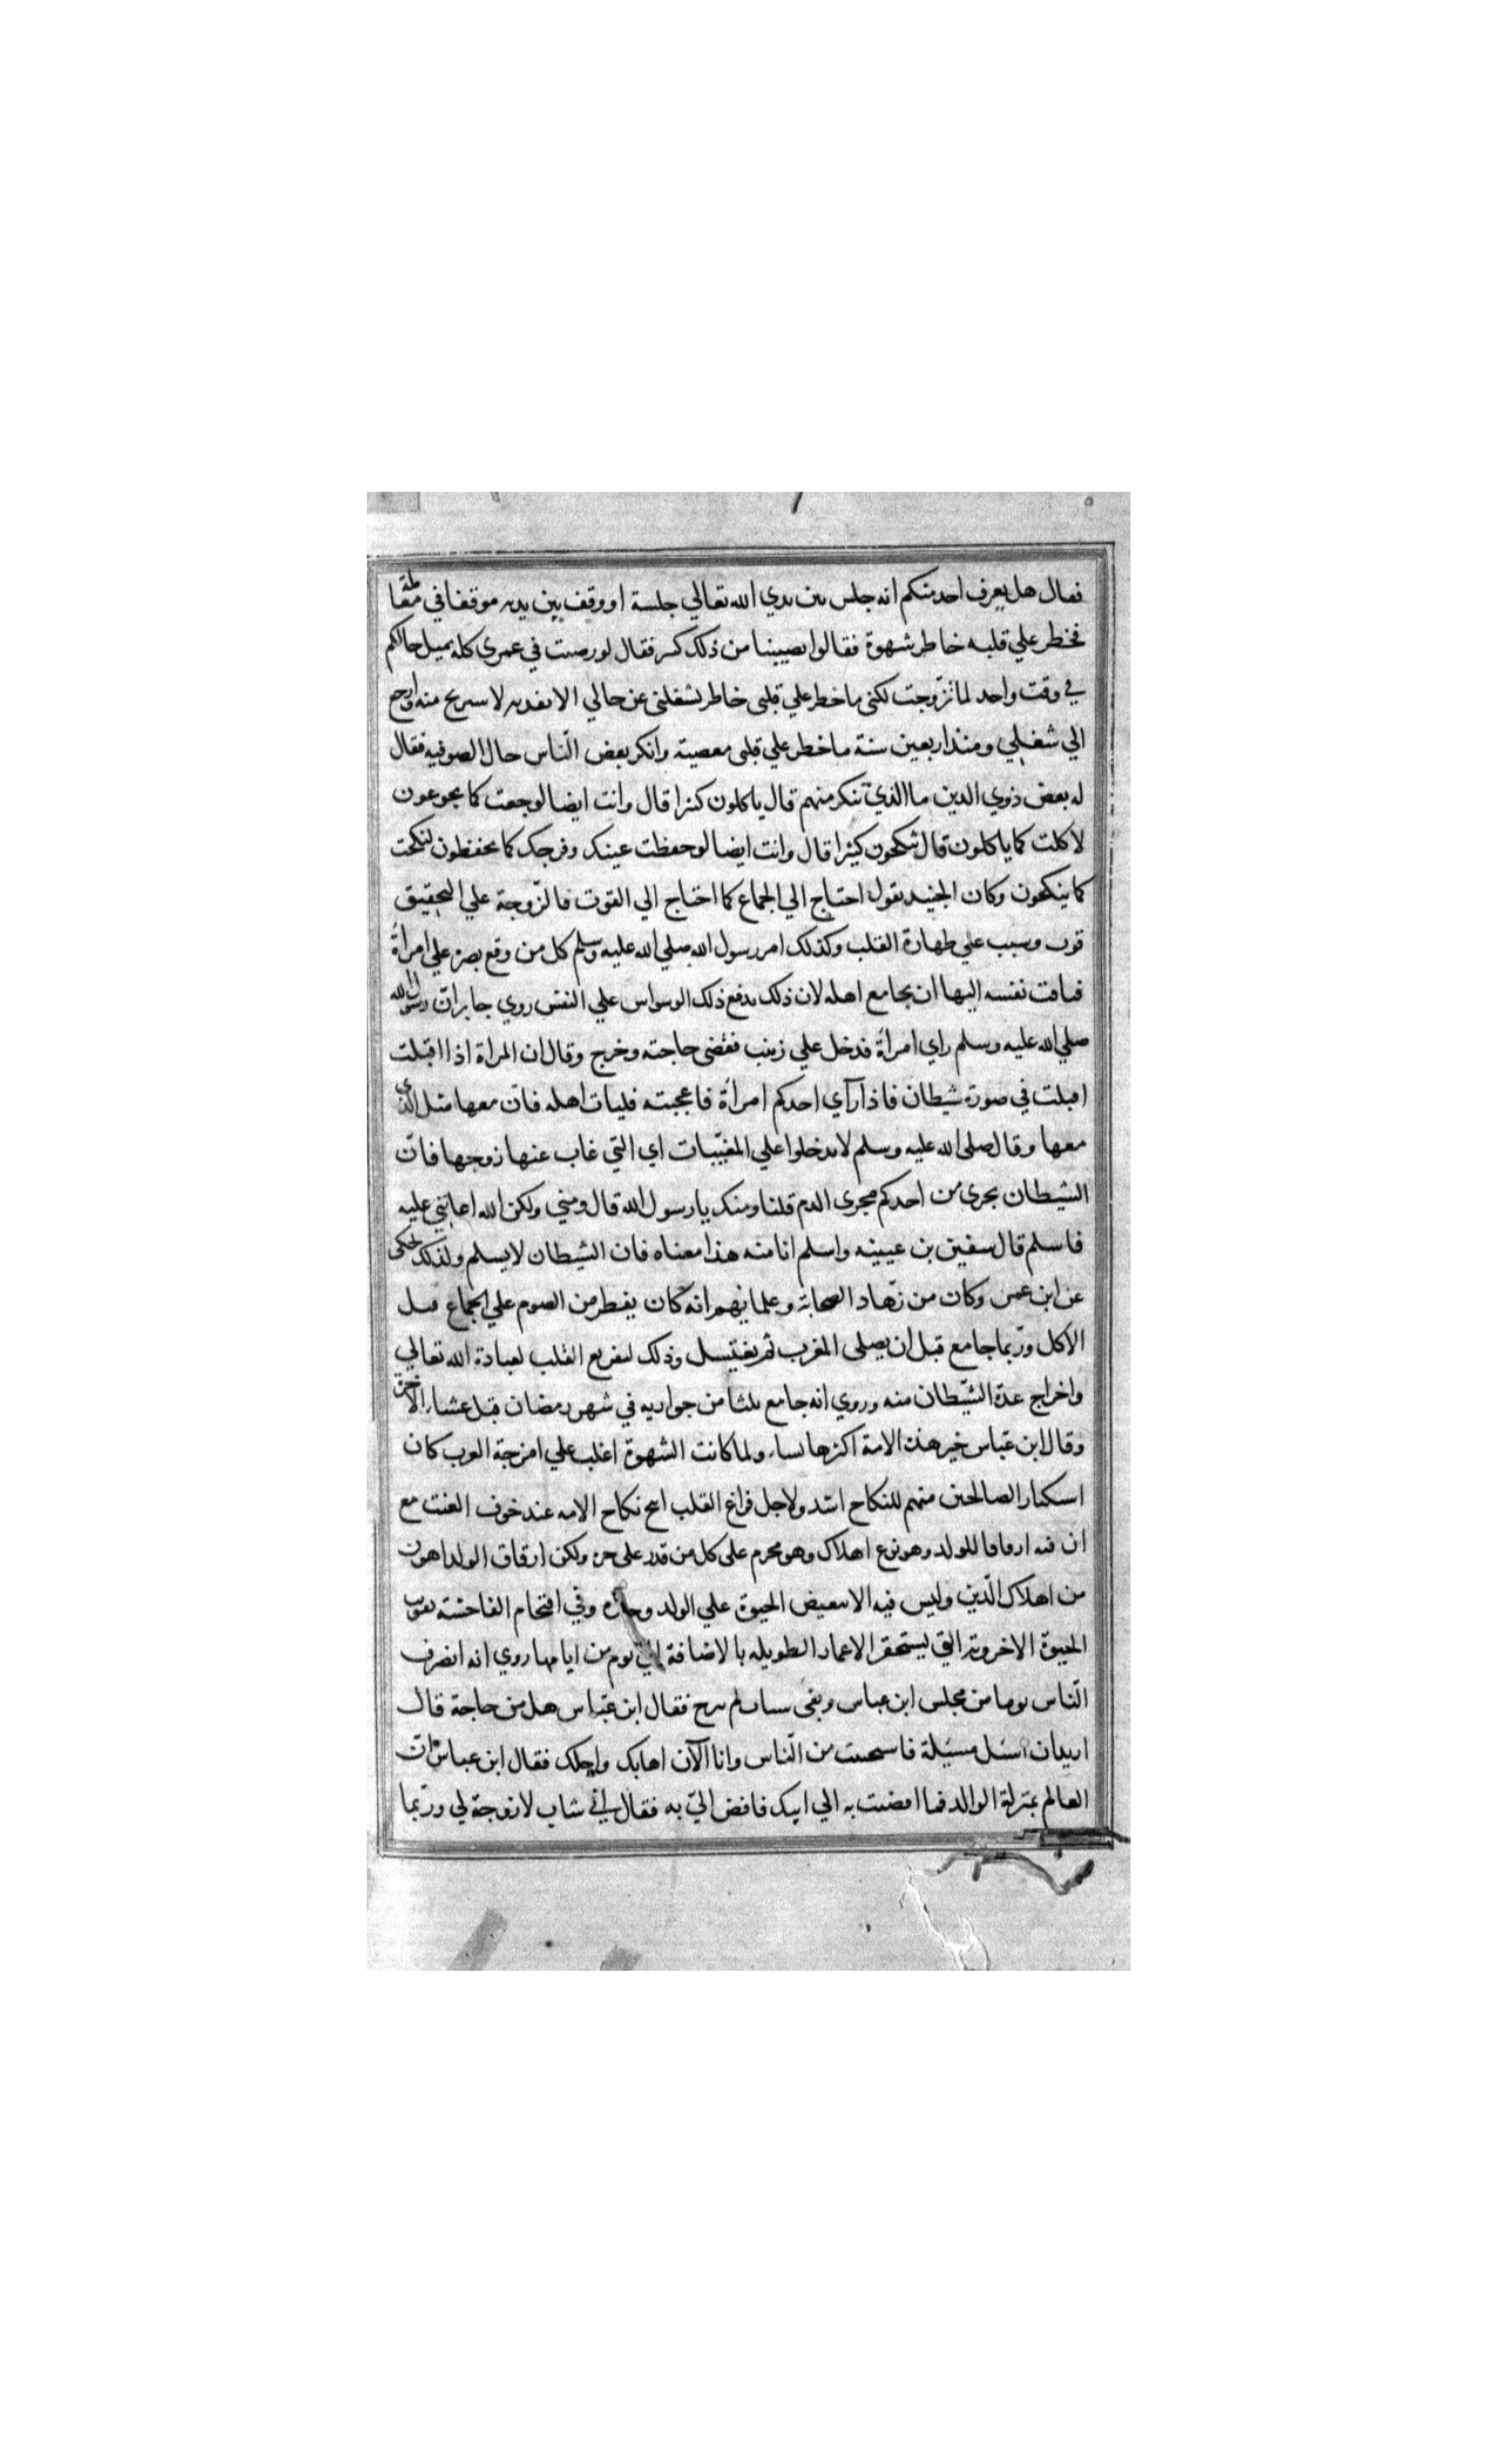 فقال هل يعرف احد منكم انه جلس بين يدي الله تعالي جلسة او وقف بين يديه موقفا في معاملة
فخطر علي قلبه خاطر شهوة فقالوا يصيبنا من ذلك كثير فقال لو رضيت في عمري كله بمثل حالكم
في وقت واحد لما تزوجت لكني ما خطر علي قلبي خاطر يشغلني عن حالي الا نفدته لاستريح منه وارجع
الي شغلي ومنذ اربعين سنة ما خطر علي قلبي معصية وانكر بعض النّاس حال الصوفيه فقال
له بعض ذوي الدين ما الذي تنكر منهم قال ياكلون كثيرا قال وانت ايضا لو جعت كما يجوعون
لاكلت كما ياكلون قال ينكحون كثيرا قال وانت ايضا لو حفظت عينك وفرجك كما يحفظون لنكحت
كما ينكحون وكان الجنيد يقول احتاج الي الجماع كما احتاج الي القوت فالزّوجة علي التحقيق
قوت وسبب علي طهارة القلب وكذلك امر رسول الله صلي الله عليه وسلم كل من وقع بصره علي امراة
فتاقت نفسه اليها ان يجامع اهله لان ذلك يدفع ذلك الوسواس علي النفس روي جابر انّ رسول الله
صلي الله عليه وسلم راي امراة فدخل علي زينب فقضي حاجته وخرج وقال ان المراة اذا اقبلت
اقبلت في صورة شيطان فاذا رآي احدكم امراة فاعجبته فليات اهله فانّ معها مثل الذي
معها وقال صلى الله عليه وسلم لا تدخلوا علي المغيّبات اي التي غاب عنها زوجها فانّ
الشيطان يجرى من احدكم مجرى الدم قلنا ومنك يا رسول الله قال ومني ولكن الله اعانني عليه
فاسلم قال سفين بن عيينه واسلم انا منه هذا معناه فان الشيطان لا يسلم ولذلك يحكى
عن ابن عمر وكان من زهّاد الصحابة وعلمائهم انه كان يفطر من الصوم علي الجماع قبل
الاكل وربّما جامع قبل ان يصلى المغرب ثم يغتسل وذلك لتفريغ القلب لعبادة الله تعالي
واخراج عدة الشّيطان منه وروي انه جامع ثلثا من جواريه في شهر رمضان قبل عشاء الآخرة
وقال ابن عبّاس خير هذه الامة اكثرها نساء ولما كانت الشهوة اغلب علي امزجة العرب كان
استكثار الصالحين منهم للنكاح اشد ولاجل فراغ القلب ابيح نكاح الامه عند خوف العنت مع
ان فيه ارقاقا للولد وهو نوع اهلاك وهو محرم على كل من قدر على حرة ولكن ارقاق الولد اهون
من اهلاك الّدين وليس فيه الا تنغيص الحيوة علي الولد وفي اقتحام الفاحشة تفويت
الحيوة الاخروية التي يستحقر الاعمار الطويله بالاضافة الي يوم من ايامها روي انه انصرف
النّاس يوما من مجلس ابن عباس وبقي شاب لم يبرح فقال ابن عبّاس هل من حاجة قال
اريد ان اسئل مسئلة فاستحييت من النّاس وانا الآن اهابك واجلك فقال ابن عباس انّ
العالم بمنزلة الوالد فما افضيت به الي ابيك فافض اليّ به فقال اني شاب لا زوجة لي وربّما